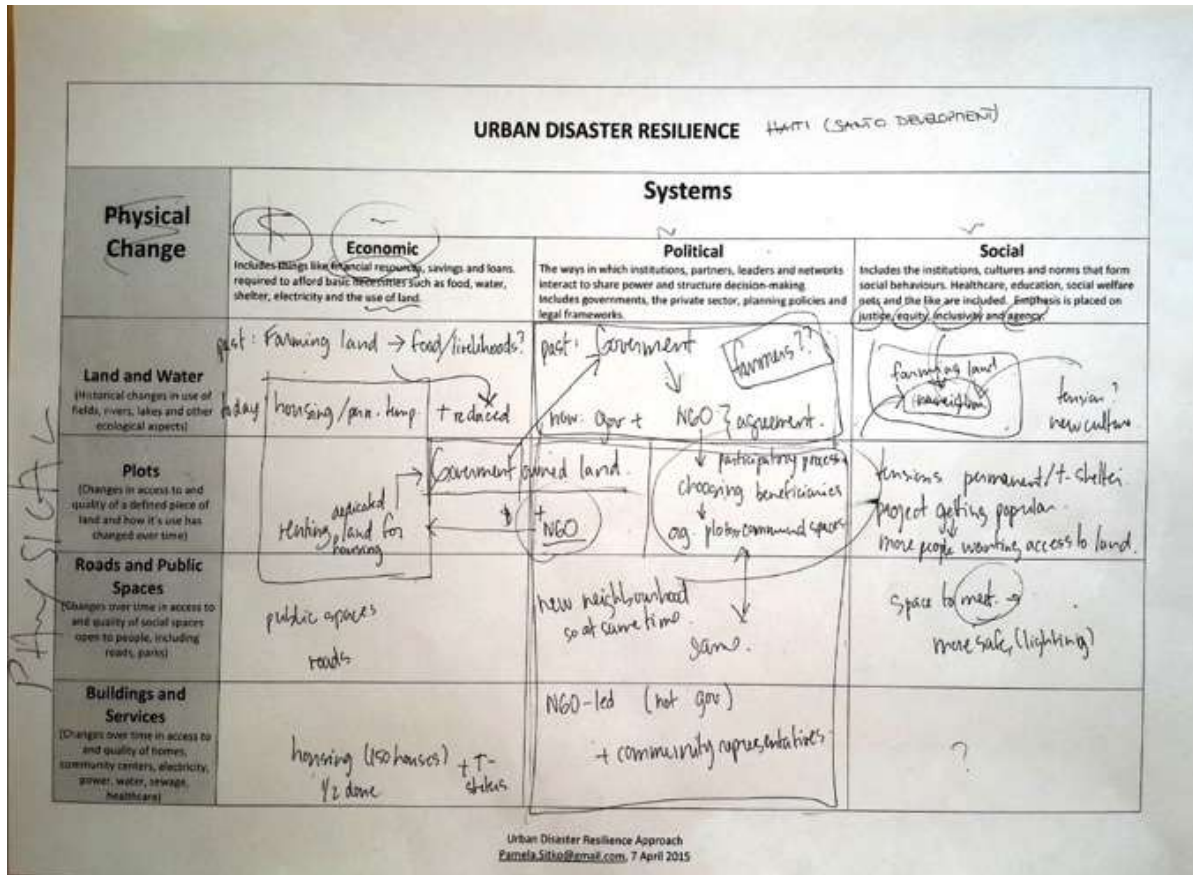 URBAN DISASTER RESILIENCE HAITI (SANTO DEVELOPMENT)
Physical
Change
Systems
$
Economic
Includes things like financial resources, savings and loans
required to afford basic necessities such as food, water,
shelter, electricity and the use of land.
Political
The ways in which institutions, partners, leaders and networks
interact to share power and structure decision-making.
Includes governments, the private sector, planning policies and
legal frameworks.
Social
Includes the institutions, cultures and norms that form
social behaviours. Healthcare, education, social welfare
nets and the like are included. Emphasis is placed on
justice, equity, inclusivity and agency.
PHYSICAL
Land and Water
(Historical changes in use of
fields, rivers, lakes and other
ecological aspects)
past: Farming land → food/livelihoods?
today housing/perm. temp. + reduced
past: Goverment
farmers??
now: gov + NGO } agreement.
farming land
tension?
new culture
Plots
(Changes in access to and
quality of a defined piece of
land and how it's use has
changed over time)
Goverment owned land.
dedicated
renting, land for
housing
+
NGO
participatory process
choosing beneficiaries
og. plots command spaces
tensions permanent/t-shelter
project getting popular
more people wanting access to land.
Roads and Public
Spaces
(Changes over time in access to
and quality of social spaces
open to people, including
roads, parks)
public spaces
roads
new neighbourhood
so at same time.
same.
space to meet. →
more safe, (lighting)
Buildings and
Services
(Changes over time in access to
and quality of homes,
community centers, electricity,
power, water, sewage,
healthcare)
housing (150 houses) + T-
1/2 done
NGO-led (not gov)
+ community representatives
?
Urban Disaster Resilience Approach
Pamela.Sitko@gmail.com, 7 April 2015